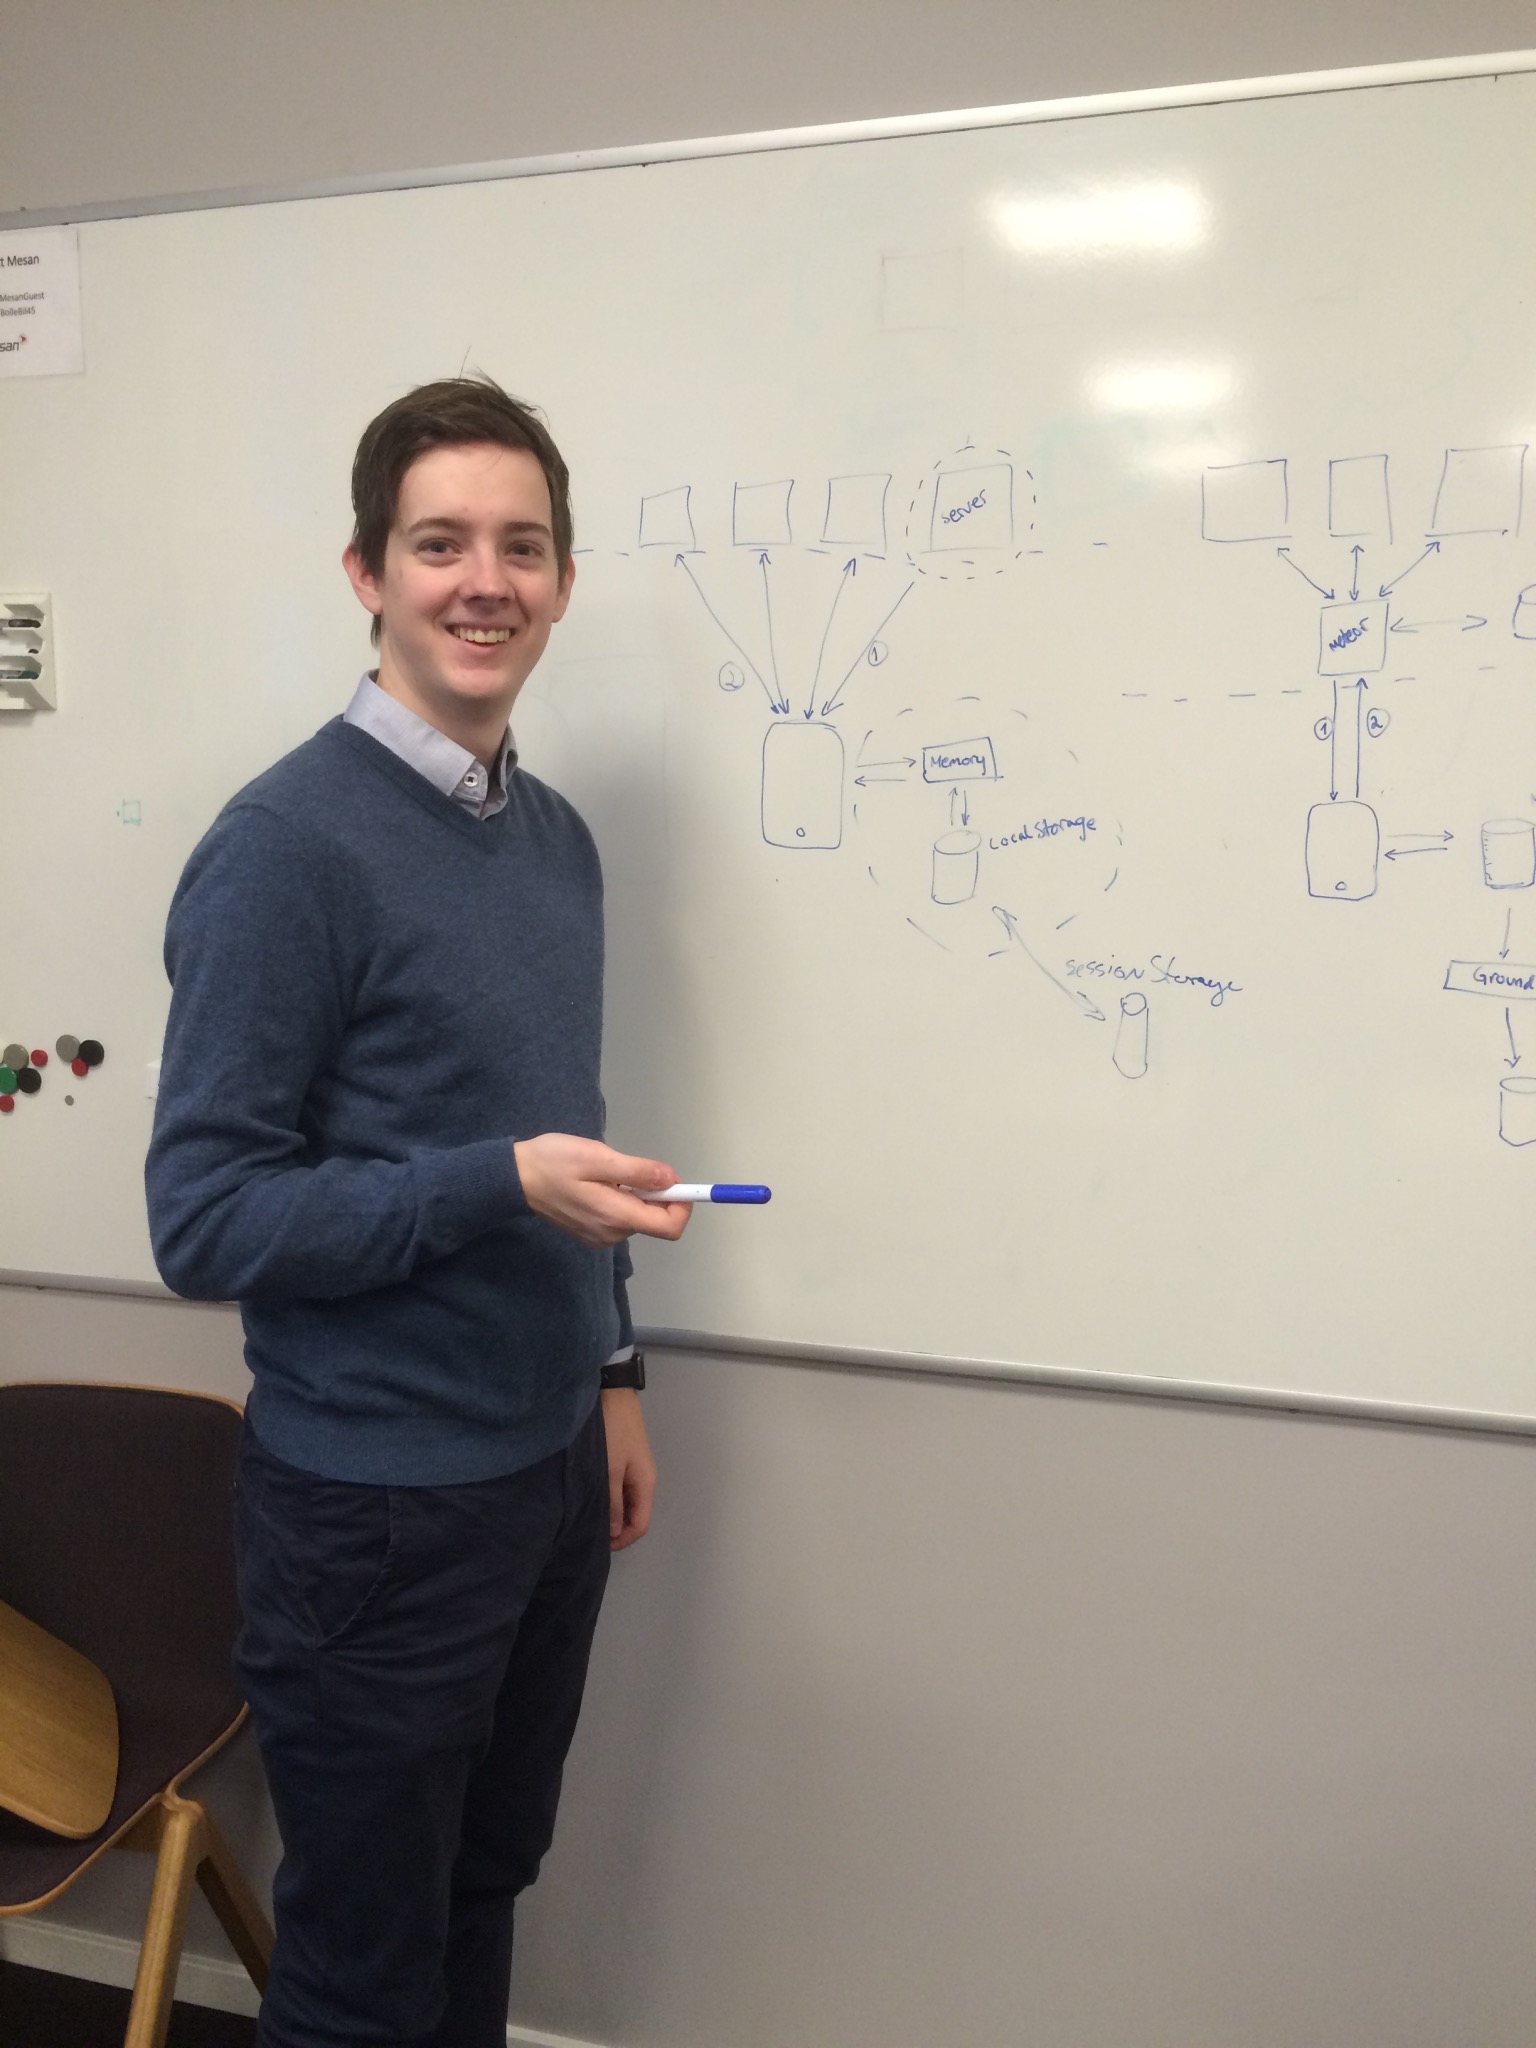 t Mesan
MesanGuest
BolleBil45
san
server
Meteor
2
1
1
2
Memory
LocalStorage
sessionStorage
Ground